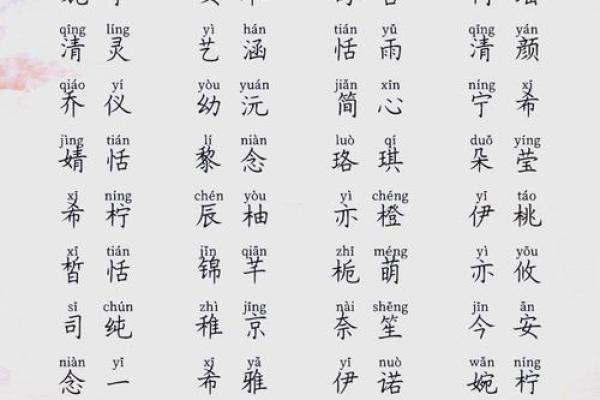 qīng líng yì hán tián yǔ qīng yán
清 灵 艺 涵 恬 雨 清 颜
qiáo yí yòu yuán jiǎn xīn níng xī
乔 仪 幼 沅 简 心 宁 希
jìng tián lí niàn luò qí duǒ yíng
婧 恬 黎 念 珞 琪 朵 莹
xī níng chén yòu yì chéng yī táo
希 柠 辰 柚 亦 橙 伊 桃
xī tián jǐn qiān zhī méng yì yōu
皙 恬 锦 芊 栀 萌 亦 攸
sī chún zhì jīng nài shēng jīn ān
司 纯 稚 京 奈 笙 今 安
niàn yī xī yǎ yī nuò wǎn níng
念 一 希 雅 伊 诺 婉 柠